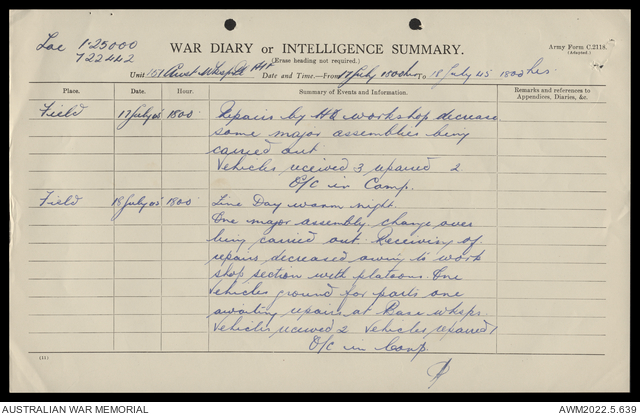 Lae 1-25000
722442
WAR DIARY or INTELLIGENCE SUMMARY.
(Erase heading not required.)
Army Form C.2118.
(Adapted.)
Unit 151 Aust Pl
Date and Time.—From 17 July 1800hrs to 18 July 45 1800 hrs
Place. Date. Hour. Summary of Events and Information. Remarks and references to
Appendices, Diaries, &c.
Field 17 July 45 1800 Repairs by HQ workshop decrease
some major assemblies being
carried out.
Vehicles received 3 repaired 2
O/C in Camp.
Field 18 July 45 1800 Fine Day warm night.
One major assembly change over
being carried out. Receiving of
repairs decreased owing to work
shop section with platoons. One
vehicles ground for parts one
awaiting repairs at Base wksps.
Vehicles received 2 Vehicles repaired 1
O/C in Camp.
AUSTRALIAN WAR MEMORIAL
AWM2022.5.639